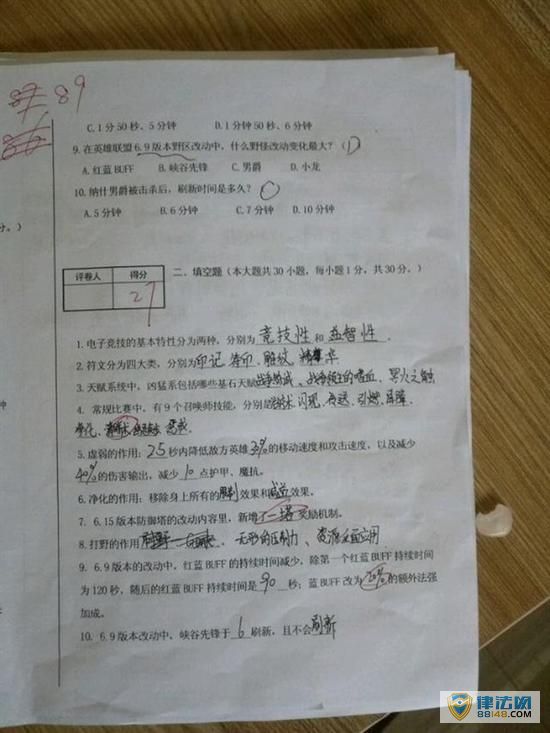 89
C.1分50秒、5分钟 D.1分钟50秒、6分钟
9. 在英雄联盟6.9版本野区改动中，什么野怪改动变化最大？（D）
A.红蓝BUFF B.峡谷先锋 C.男爵 D.小龙
10. 纳什男爵被击杀后，刷新时间是多久？
A.5分钟 B.6分钟 C.7分钟 D.10分钟
分。）
评卷人 得分
27
二、填空题（本大题共30小题，每小题1分，共30分。）
1. 电子竞技的基本特性分为两种，分别为竞技性和益智性。
2. 符文分为四大类，分别为印记 符印、雕纹、精华
3. 天赋系统中，凶猛系包括哪些基石天赋战争热忱、战争领主的嗜血、死火之触
4. 常规比赛中，有9个召唤师技能，分别是治疗术 闪现、传送、引燃、屏障、
净化、惩戒
5. 虚弱的作用：2.5秒内降低敌方英雄30%的移动速度和攻击速度，以及减少
40%的伤害输出，减少10点护甲、魔抗。
6. 净化的作用：移除身上所有的限制效果和减益效果。
7. 6.15版本防御塔的改动内容里，新增了一塔奖励机制。
8. 打野的作用 无形的压制力、资源反面应用
9. 6.9版本的改动中，红蓝BUFF的持续时间减少，除第一个红蓝BUFF持续时间
为120秒，随后的红蓝BUFF持续时间是90秒；蓝BUFF改为20%的额外法强
加成。
10. 6.9版本改动中，峡谷先锋于6刷新，且不会刷新
钟
律法网
88148.COM